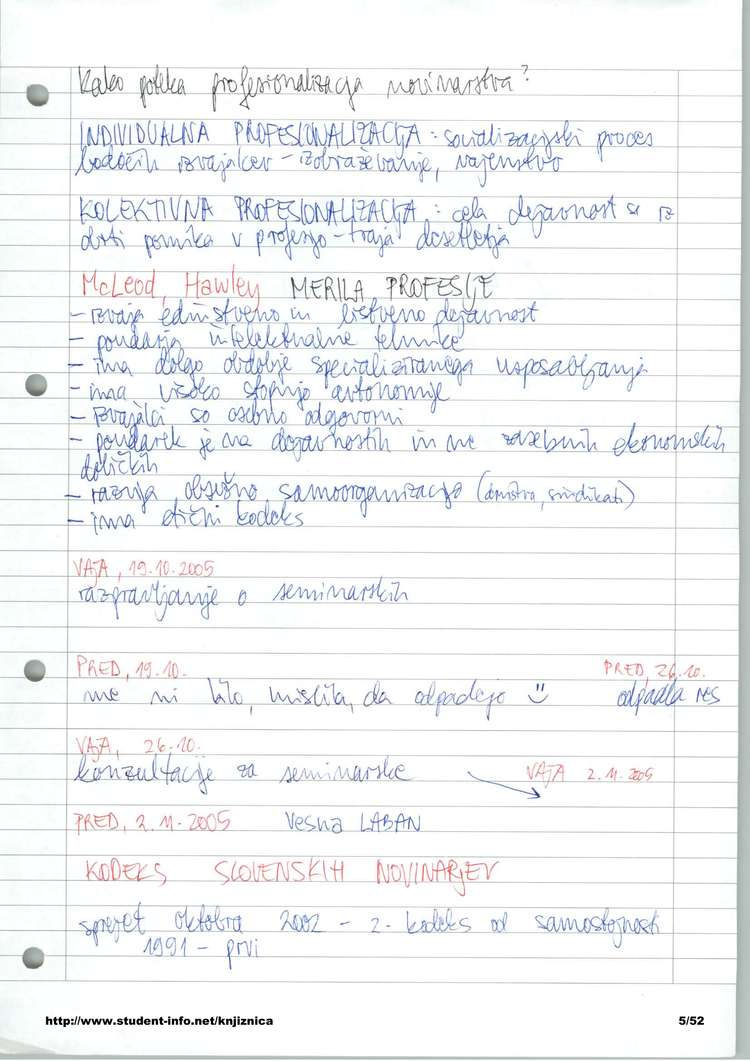 Kako poteka profesionalizacija novinarstva?
INDIVIDUALNA PROFESIONALIZACIJA: socializacijski proces
bodočih izvajalcev - izobraževanje, vajenstvo
KOLEKTIVNA PROFESIONALIZACIJA: cela dejavnost se iz
obrti pomika v profesijo - traja desetletja
McLeod, Hawley MERILA PROFESIJE
- izvaja edinstveno in bistveno dejavnost
- poudarja intelektualne tehnike
- ima dolgo obdobje specializiranega usposabljanja
- ima visoko stopnjo avtonomije
- izvajalci so osebno odgovorni
- poudarek je na dejavnostih in ne zasebnih ekonomskih
dobičkih
- razvija obsežno samoorganizacijo (društva, sindikati)
- ima etični kodeks
VAJA, 19.10.2005
razpravljanje o seminarskih
PRED, 19.10. PRED, 26.10.
me ni bilo, mislila, da odpadejo odpadla res
VAJA, 26.10.
konzultacije za seminarske VAJA 2.11.2005
PRED, 2.11.2005 Vesna LABAN
KODEKS SLOVENSKIH NOVINARJEV
sprejet oktobra 2002 - 2. kodeks od samostojnosti
1991 - prvi
http://www.student-info.net/knjiznica 5/52